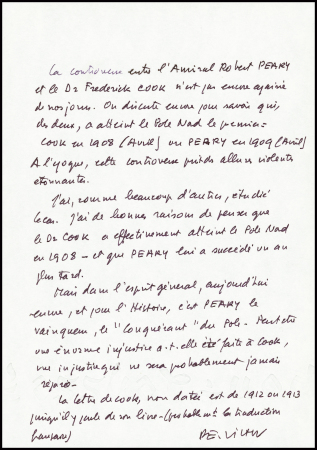 La controverse entre l'Amiral Robert PEARY
et le Dr Frederick COOK n'est pas encore apaisée
de nos jours. On discute encore pour savoir qui,
des deux, a atteint le Pole Nord le premier =
COOK en 1908 (Avril) ou PEARY en 1909 (Avril)
A l'époque, cette controverse prit des allures violentes
etonnantes.
J'ai, comme beaucoup d'autres, étudié
le cas. J'ai de bonnes raisons de penser que
le Dr COOK a effectivement atteint le Pole Nord
en 1908 - et que PEARY lui a succédé un an
plus tard.
Mais dans l'esprit général, aujourd'hui
encore, et pour l'Histoire, c'est PEARY le
vainqueur, le "Conquérant" du Pole. Peut etre
une énorme injustice a-t-elle été faite à Cook,
une injustice qui ne sera probablement jamais
réparée.
La lettre de Cook, non datée est de 1912 ou 1913
puisqu'il y parle de son livre - (probablement la traduction
française)